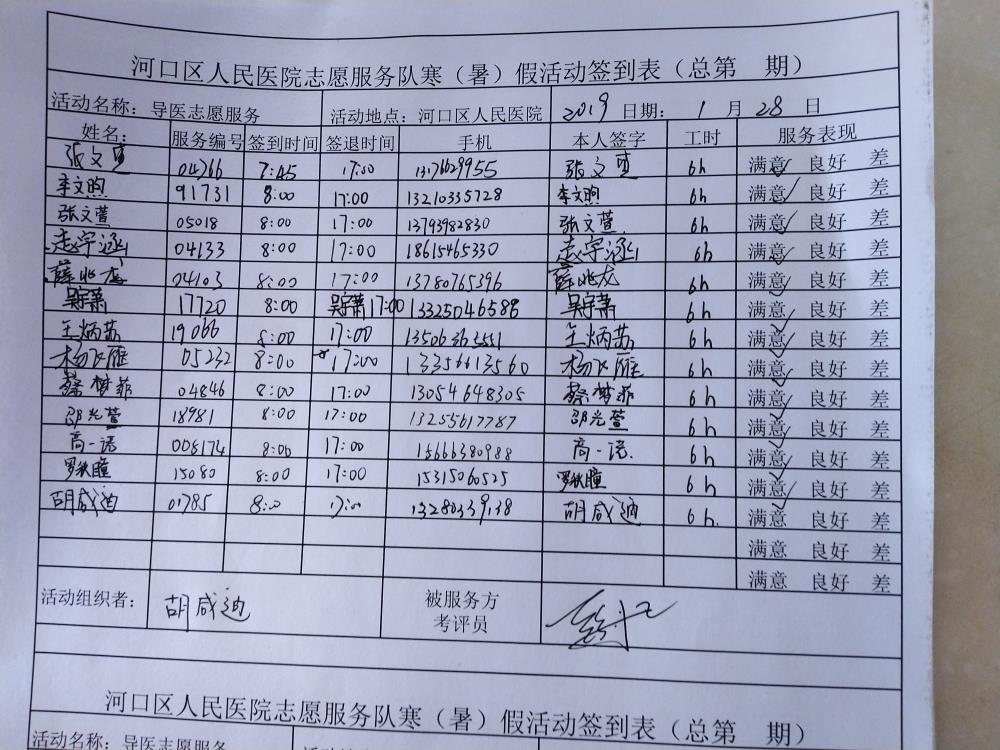 河口区人民医院志愿服务队寒（暑）假活动签到表（总第 期）
活动名称：导医志愿服务 活动地点：河口区人民医院 2019 日期： 1 月 28 日
姓名： 服务编号 签到时间 签退时间 手机 本人签字 工时 服务表现
张文宽 04766 7:45 17:00 张文宽 6h 满意✓ 良好 差
李文煦 91731 8:00 17:00 13210335728 李文煦 6h 满意✓ 良好 差
张文萱 05018 8:00 17:00 13793982830 张文萱 6h 满意✓ 良好 差
赵宇涵 04133 8:00 17:00 18615465330 赵宇涵 6h 满意✓ 良好 差
薛兆龙 04103 8:00 17:00 13780765396 薛兆龙 6h 满意✓ 良好 差
吴宇萧 17720 8:00 吴宇萧 17:00 13325046586 吴宇萧 6h 满意✓ 良好 差
王炳苏 19066 8:00 17:00 13506365551 王炳苏 6h 满意✓ 良好 差
杨飞雁 05232 8:00 17:00 13356613560 杨飞雁 6h 满意✓ 良好 差
蔡梦菲 04846 8:00 17:00 13054648305 蔡梦菲 6h 满意✓ 良好 差
邵光萱 18981 8:00 17:00 13255617787 邵光萱 6h 满意✓ 良好 差
高一诺 008174 8:00 17:00 15666380988 高一诺 6h 满意✓ 良好 差
罗秋瞳 15080 8:00 17:00 15315060525 罗秋瞳 6h 满意✓ 良好 差
胡咸迪 01785 8:00 17:00 13280339138 胡咸迪 6h. 满意✓ 良好 差
满意 良好 差
满意 良好 差
活动组织者： 胡咸迪 被服务方
考评员
河口区人民医院志愿服务队寒（暑）假活动签到表（总第 期）
活动名称：导医志愿服务